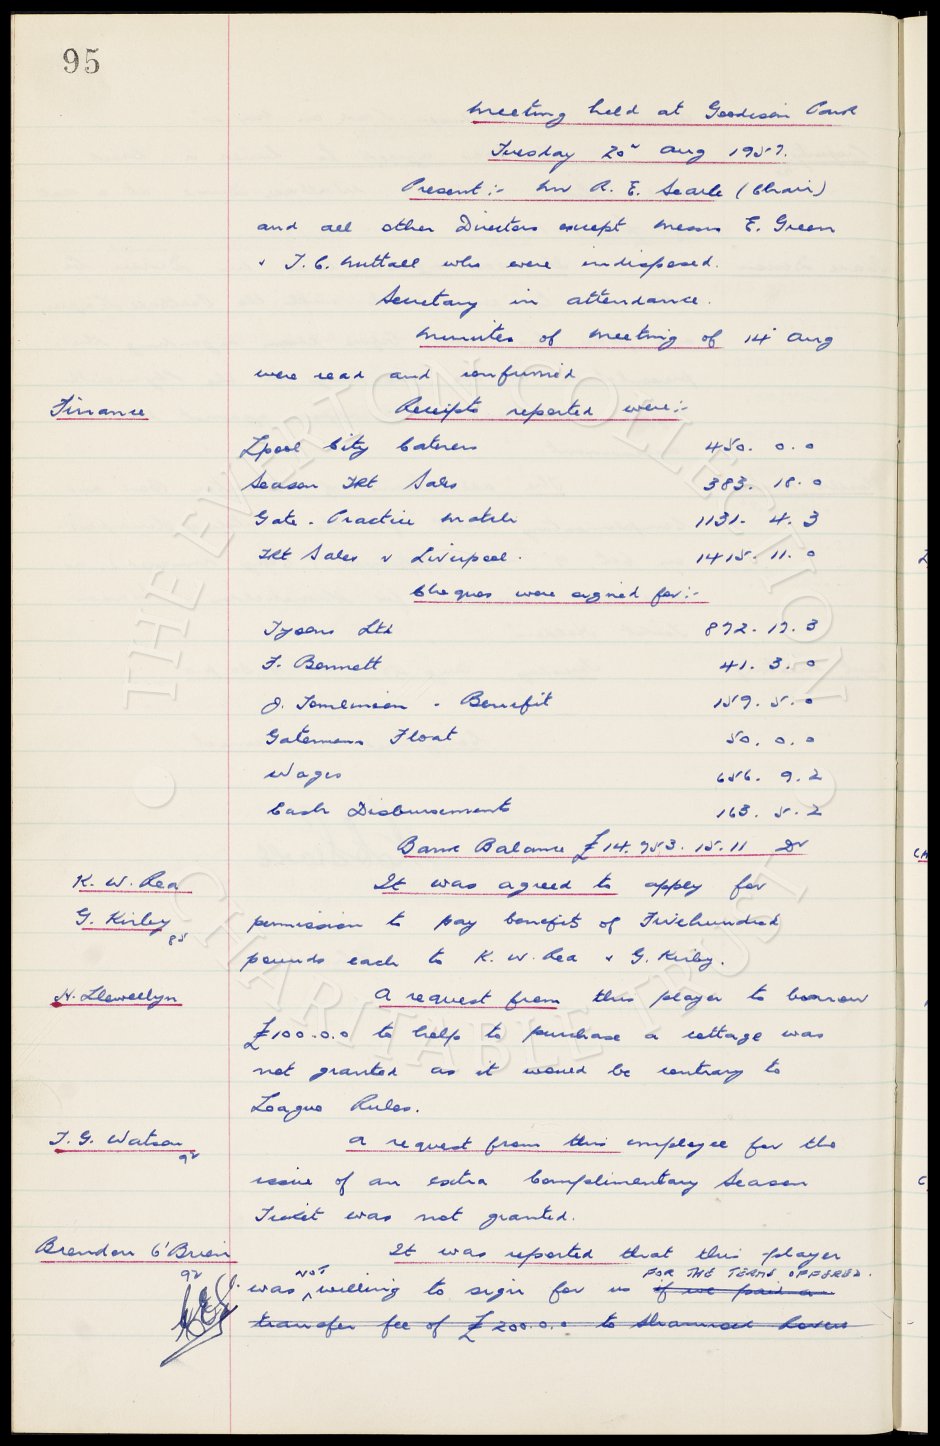 95
Meeting held at Goodison Park
Tuesday 20" Aug 1957.
Present :- Mr R. E. Searle (Chair)
and all other Directors except Messrs E. Green
& T. C. Nuttall who were indisposed.
Secretary in attendance.
Minutes of Meeting of 14" Aug
were read and confirmed
Finance Receipts reported were :-
Lpool City Caterers 450. 0. 0
Season Tkt Sales 383. 18. 0
Gate - Practice Match 1131. 4. 3
Tkt Sales v Liverpool. 1415. 11. 0
Cheques were signed for :-
Tysons Ltd 892. 17. 3
F. Bennett 41. 3. 0
J. Tomlinson - Benefit 159. 5. 0
Gatemens Float 50. 0. 0
Wages 656. 9. 2
Cash Disbursements 163. 5. 2
Bank Balance £14. 953. 15. 11 Dr
K. W. Rea It was agreed to apply for
G. Kirby 85 permission to pay benefits of Fivehundred
pounds each to K. W. Rea & G. Kirby.
H. Llewellyn A request from this player to borrow
£100.0.0 to help to purchase a cottage was
not granted as it would be contrary to
League Rules.
T. G. Watson 92 A request from this employee for the
issue of an extra Complimentary Season
Ticket was not granted.
Brendan O'Brien 92 It was reported that this player
was NOT willing to sign for us FOR THE TERMS OFFERED. if we paid a
transfer fee of £200.0.0 to Shamrock Rovers
THE EVERTON COLLECTION
CHARITABLE TRUST